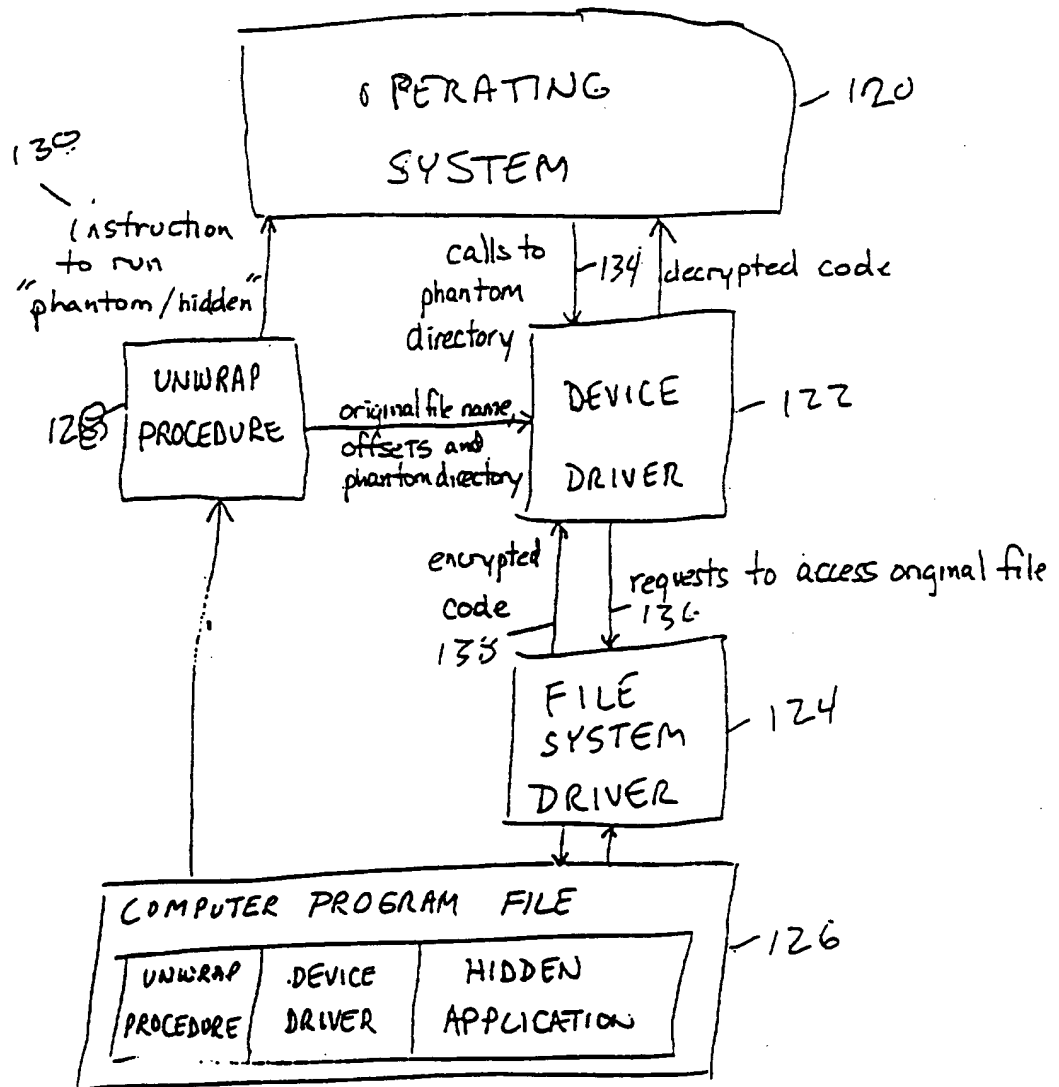 OPERATING
SYSTEM
120
130
instruction
to run
"phantom/hidden"
calls to
phantom
directory
134
decrypted code
UNWRAP
PROCEDURE
original file name,
offsets and
phantom directory
DEVICE
DRIVER
122
encrypted
code
138
requests to access original file
136
FILE
SYSTEM
DRIVER
124
COMPUTER PROGRAM FILE
126
UNWRAP
PROCEDURE
DEVICE
DRIVER
HIDDEN
APPLICATION